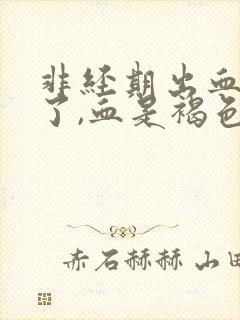 非经期出血
了,血是褐色
赤石赫赫山田